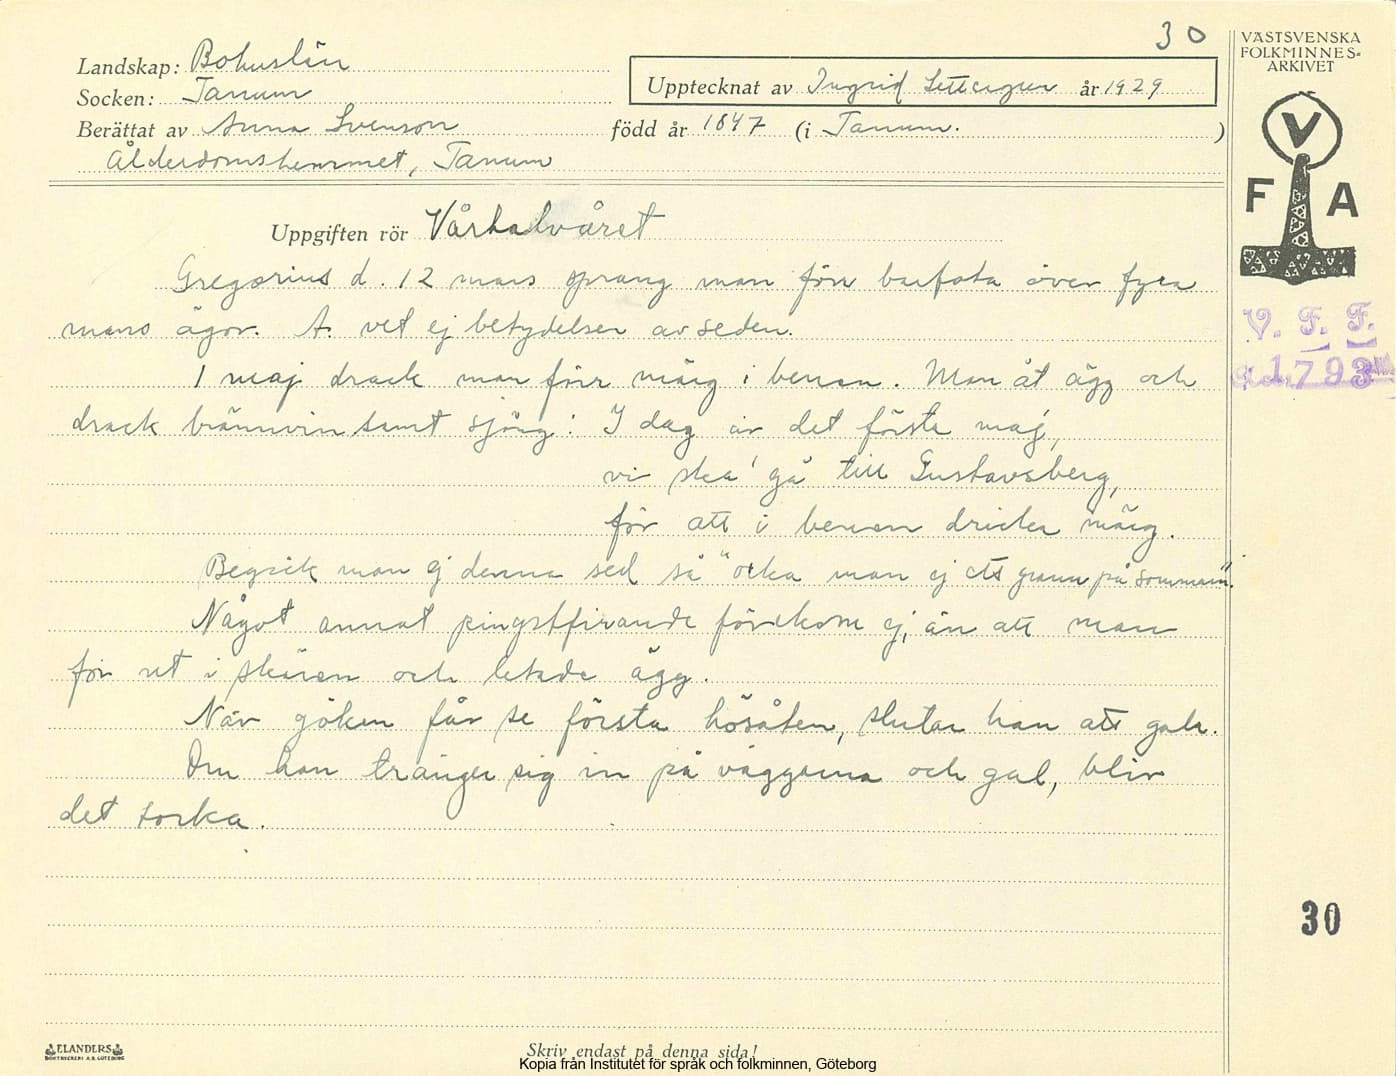 30
VÄSTSVENSKA
FOLKMINNES-
ARKIVET
V
F A
Landskap: Bohuslän
Socken: Tanum
Upptecknat av Ingrid år 1929
Berättat av Anna Svenson född år 1847 (i Tanum. )
Ålderdomshemmet, Tanum
Uppgiften rör Vårhalvåret
Gregorius d. 12 mars sprang man förr barfota över fyra
mans ägor. A. vet ej betydelsen av seden.
1 maj drack man förr märg i benen. Man åt ägg och
drack brännvin samt sjöng: I dag är det första maj,
vi ska' gå till Gustavsberg,
för att i benen dricka märg.
Begick man ej denna sed så "orka man ej ett grann på sommarn".
Något annat pingstfirande förekom ej, än att man
för ut i skären och letade ägg.
När göken får se första hösåten, slutar han att gala.
Om han tränger sig in på väggarna och gal, blir
det torka.
V. F. F.
1793
30
ELANDERS
BOKTRYCKERI A.B. GÖTEBORG
Skriv endast på denna sida!
Kopia från Institutet för språk och folkminnen, Göteborg